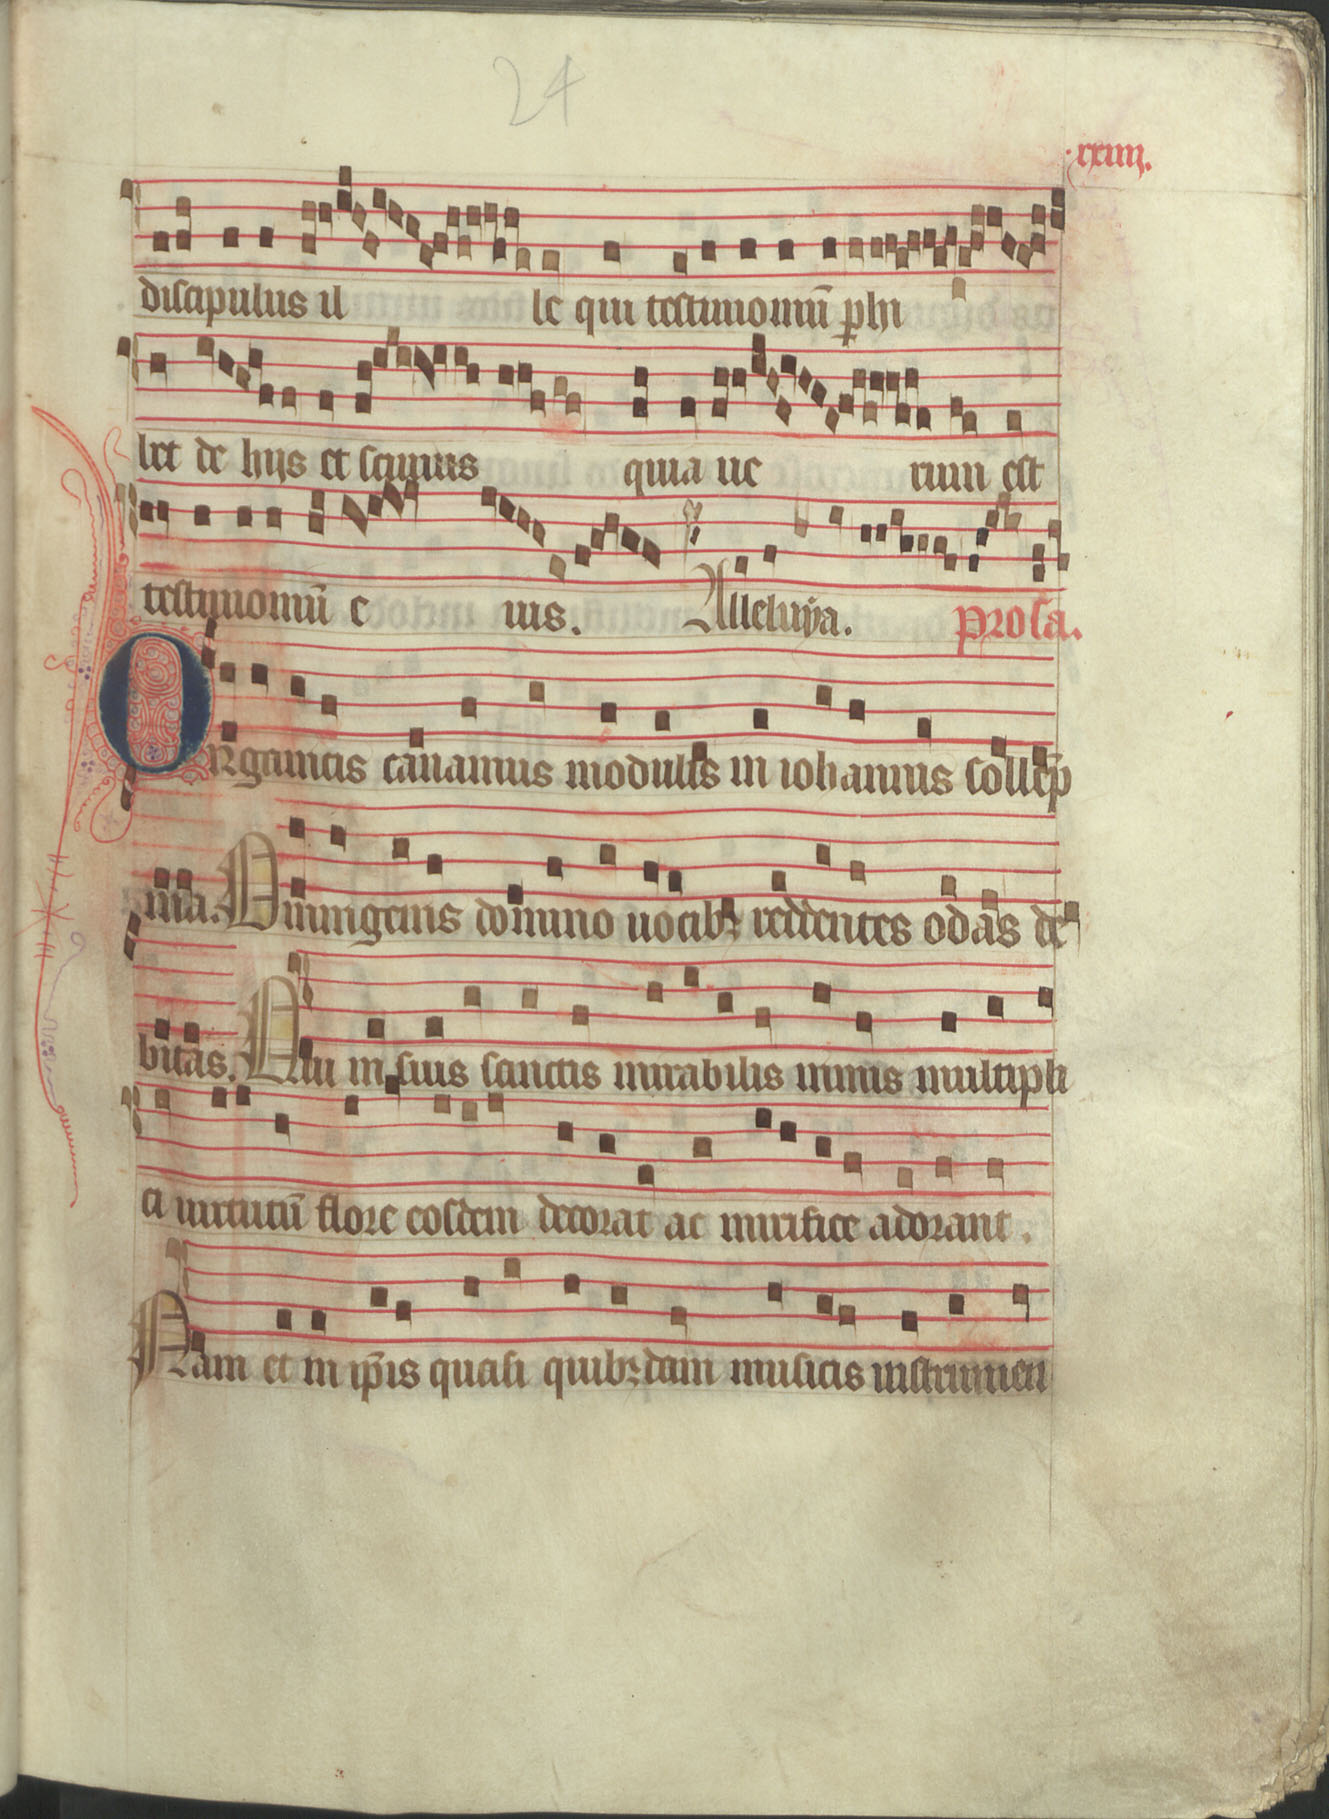 24
.xxiiii.
discipulus il le qui testimoniū ꝑhi
bet de hijs et scimus quia ue rum est
testimoniū e ius. Alleluya. Prosa.
Organicis canamus modulis in iohannis sollēp
nia. Omnigenis domino uocibꝫ reddentes odas de
bitas. Qui in suis sanctis mirabilis nimis multipli
ci uirtutū flore eosdem decorat ac mirifice adorant.
Nam et in ip̄is quasi quibꝫdam musicis instrumen